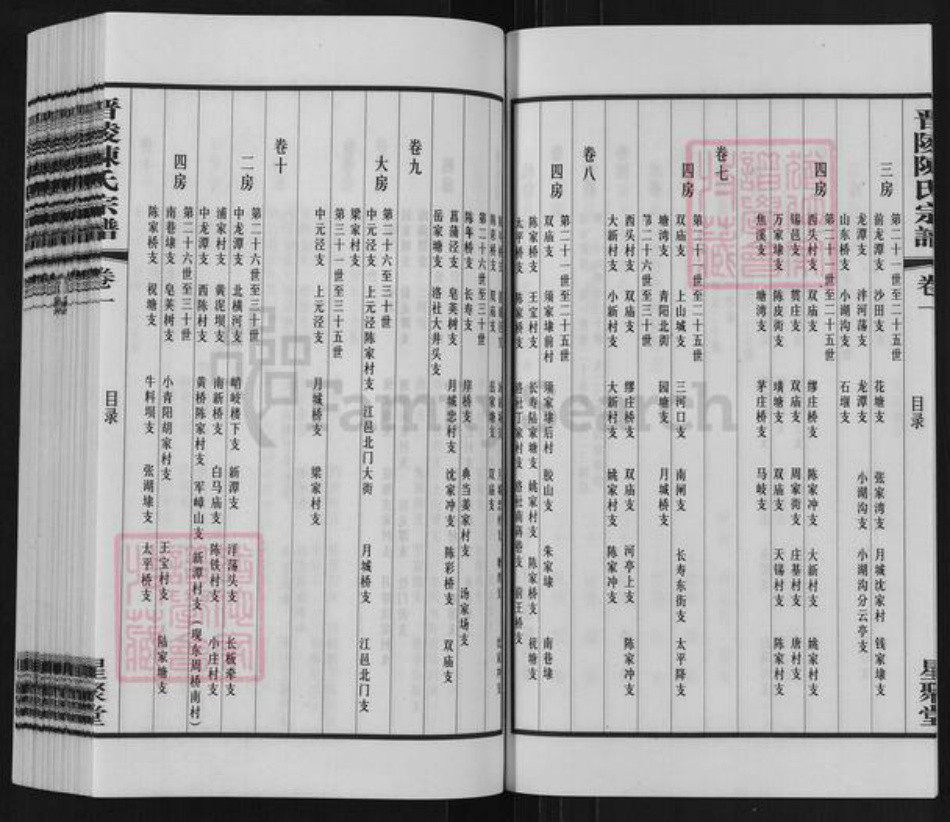 晋陵陈氏宗谱 卷一 目录 星聚堂
三房
第二十一世至二十五世
前龙潭支 沙田支 花塘支 张家湾支 月城沈家村 钱家埭支
龙潭支 泮河荡支 龙潭支 小湖沟支 小湖沟分云亭支
山东桥支 小湖沟支 石堰支
四房
第二十一世至二十五世
西头村支 双庙支 缪庄桥支 陈家冲支 大新村支 姚家村支
锡邑支 贳庄支 双庙支 周家街支 庄基村支 唐村支
万家埭支 陈皮街支 璜塘支 双庙支 天锡村支 陈家村支
焦溪支 塘湾支 茅庄桥支 马岐支
卷七
四房
第二十一世至二十五世
双庙支 上山城支 三河口支 南闸支 长寿东街支 太平降支
塘湾支 青阳北街 园塘支 月城桥支
第二十六世至三十世
西头村支 双庙支 缪庄桥支 双庙支 河亭上支 陈家冲支
大新村支 小新村支 大新村支 姚家村支 陈家冲支
卷八
四房
第二十一世至二十五世
双庙支 须家埭前村 须家埭后村 胶山支 朱家埭 南巷埭
陈家桥支 王宝村支 长寿陆家塘支 姚家村支 陈家桥支 祝塘支
太平桥支 陈家桥支
第二十六世至三十世
陈年桥支 长寿支 岸桥支 典当姜家村支 汤家场支
菖蒲泾支 皂荚树支 月城忠村支 沈家冲支 陈彩桥支 双庙支
岳家塘支 洛社大井头支
卷九
大房
第二十六至三十世
中元泾支 上元泾陈家村支 江邑北门大街 月城桥支 江邑北门支
梁家村支
第三十一世至三十五世
中元泾支 上元泾支 月城桥支 梁家村支
卷十
二房
第二十六世至三十世
中龙潭支 北横河支 峭岐楼下支 新潭支 洋荡头支 长板牵支
浦家村支 黄泥坝支 南新桥支 白马庙支 陈铁村支 小庄村支
中龙潭支 西陈村支 黄桥陈家村支 军嶂山支 新潭村支（现东周桥南村）
四房
第二十六世至三十世
南巷埭支 皂荚树支 小青阳胡家村支 王宝村支 陆家塘支
陈家桥支 祝塘支 牛料坝支 张湖埭支 太平桥支
晋陵陈氏宗谱 卷一 目录 星聚堂
FamilySearch